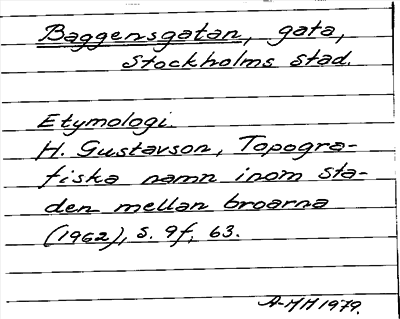 Baggensgatan, gata,
Stockholms stad.
Etymologi.
H. Gustavson, Topogra-
fiska namn inom sta-
den mellan broarna
(1962), s. 9f, 63.
A-MH 1979.